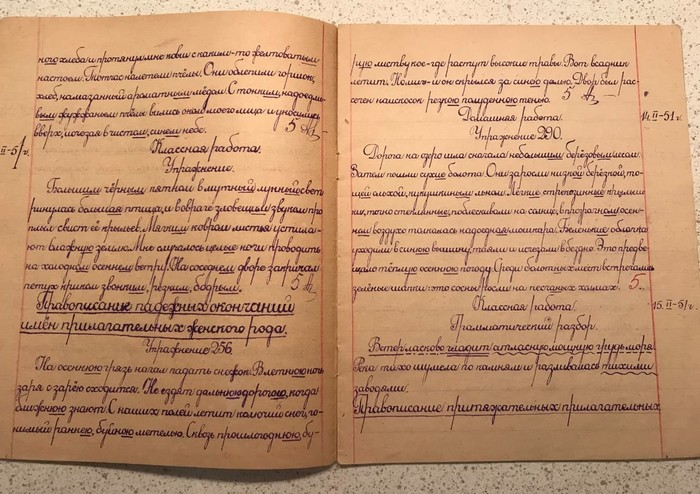 ного хлеба и протянул мне ковш с каким-то желтоватым
настоем. Тотчас налетели пчёлы. Они облепили горшок,
хлеб, намазанный ароматным мёдом. С тонким, надоедли-
вым жужжаньем пчёлы вились около моего лица и уносились
вверх, исчезая в чистом, синем небе. 5
II-51г.
Классная работа.
Упражнение.
Большим чёрным пятном в мутный лунный свет
ринулась большая птица, и в овраге зловещим звуком про
плыл свист её крыльев. Мягким ковром листья устила-
ют влажную землю. Мне случалось целые ночи проводить
на холодном осеннем ветру. На соседнем дворе закричал
петух криком звонким, резким, бодрым. 5
Правописание падежных окончаний
имён прилагательных женского рода.
Упражнение 256.
На осеннюю грязь начал падать снежок. В летнюю ночь
заря с зарёю сходится. Не ездят дальнюю дорогою, когда
ближнюю знают. С наших полей летит колючий снег, го-
нимый раннею, буйною метелью. Сквозь прошлогоднюю, бу-
рую листву кое-где растут высокие травы. Вот всадник
летит. Как и он скрылся за синею далью. Двор был рас-
сечен наискосок резкою полуденною тенью. 5
Домашняя работа.
14. II-51 г.
Упражнение 290.
Дорога на ферму шла сначала небольшим берёзовым лесом.
Затем пошли сухие болота. Они заросли низкой берёзкой, то-
щей ольхой, кукушкиным льном. Лёгкие стрекозиные крылыш-
ки, точно стеклянные, поблескивали на солнце, в прозрачном осен-
нем воздухе толкалась надоедная мошкара. Беленькие облачка
уходили в синюю вышину, таяли и исчезали в бездне. Это предве-
щало тёплую осеннюю погоду. Среди болотных мест встречались
зелёные шапки: это сосны росли на песчаных холмах. 5
Классная работа.
15. II-51г
Грамматический разбор.
Ветер ласково гладит атласную мощную грудь моря.
Река тихо шумела по камням и разливалась тихими
заводями.
Правописание притяжательных прилагательных